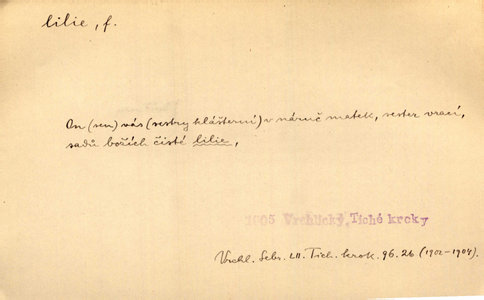 lilie, f.
On (sen) vás (sestry klášterní) v náruč matek, sester vrací,
sadů božích čisté lilie,
1905 Vrchlický, Tiché kroky
Vrchl. Sebr. LII. Tich. krok. 96.26 (1902-1904).